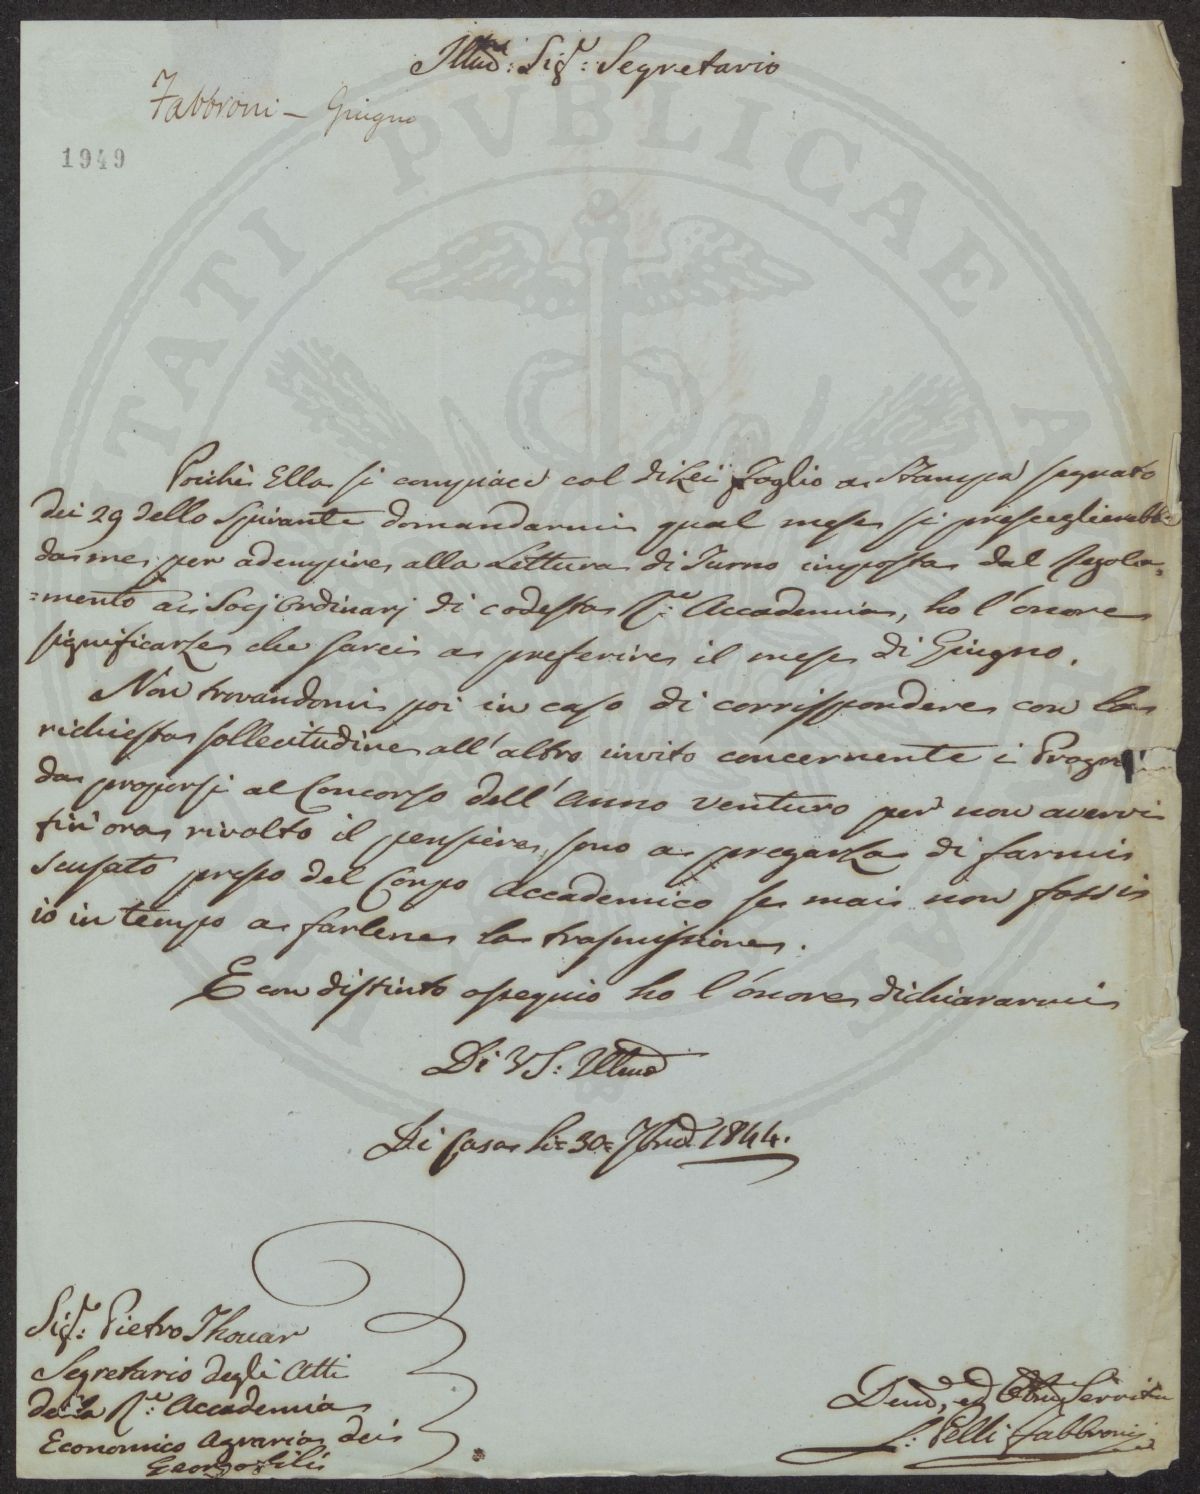 Illmo: Sigr: Segretario
Fabbroni - Giugno
1949
PUBLICAE
Poichè Ella si compiace col di Lei Foglio a Stampa segnato
dei 29 dello Spirante domandarmi qual mese si presceglierebbe
da me per adempire alla Lettura di Turno imposta dal Regola=
=mento ai Socj Ordinarj di codesta R.e Accademia, ho l'onore
significarle che sarei a preferire il mese di Giugno.
Non trovandomi poi in caso di corrispondere con la
richiesta sollecitudine all'altro invito concernente i
da proporsi al Concorso dell'Anno venturo per non avervi
fin'ora rivolto il pensiere, sono a pregarla di farmi
scusato presso del Corpo Accademico se mai non fossi
io in tempo a farlene la trasmissione.
E con distinto ossequio ho l'onore dichiararmi
Di VS: Illma
Di Casa li= 30= 7bre 1844.
Sigr: Pietro Thouar
Segretario degli Atti
della R.e Accademia
Economico Agraria dei
Georgofili
Devmo, ed Obbmo Servitu
L: Pelli Fabbroni